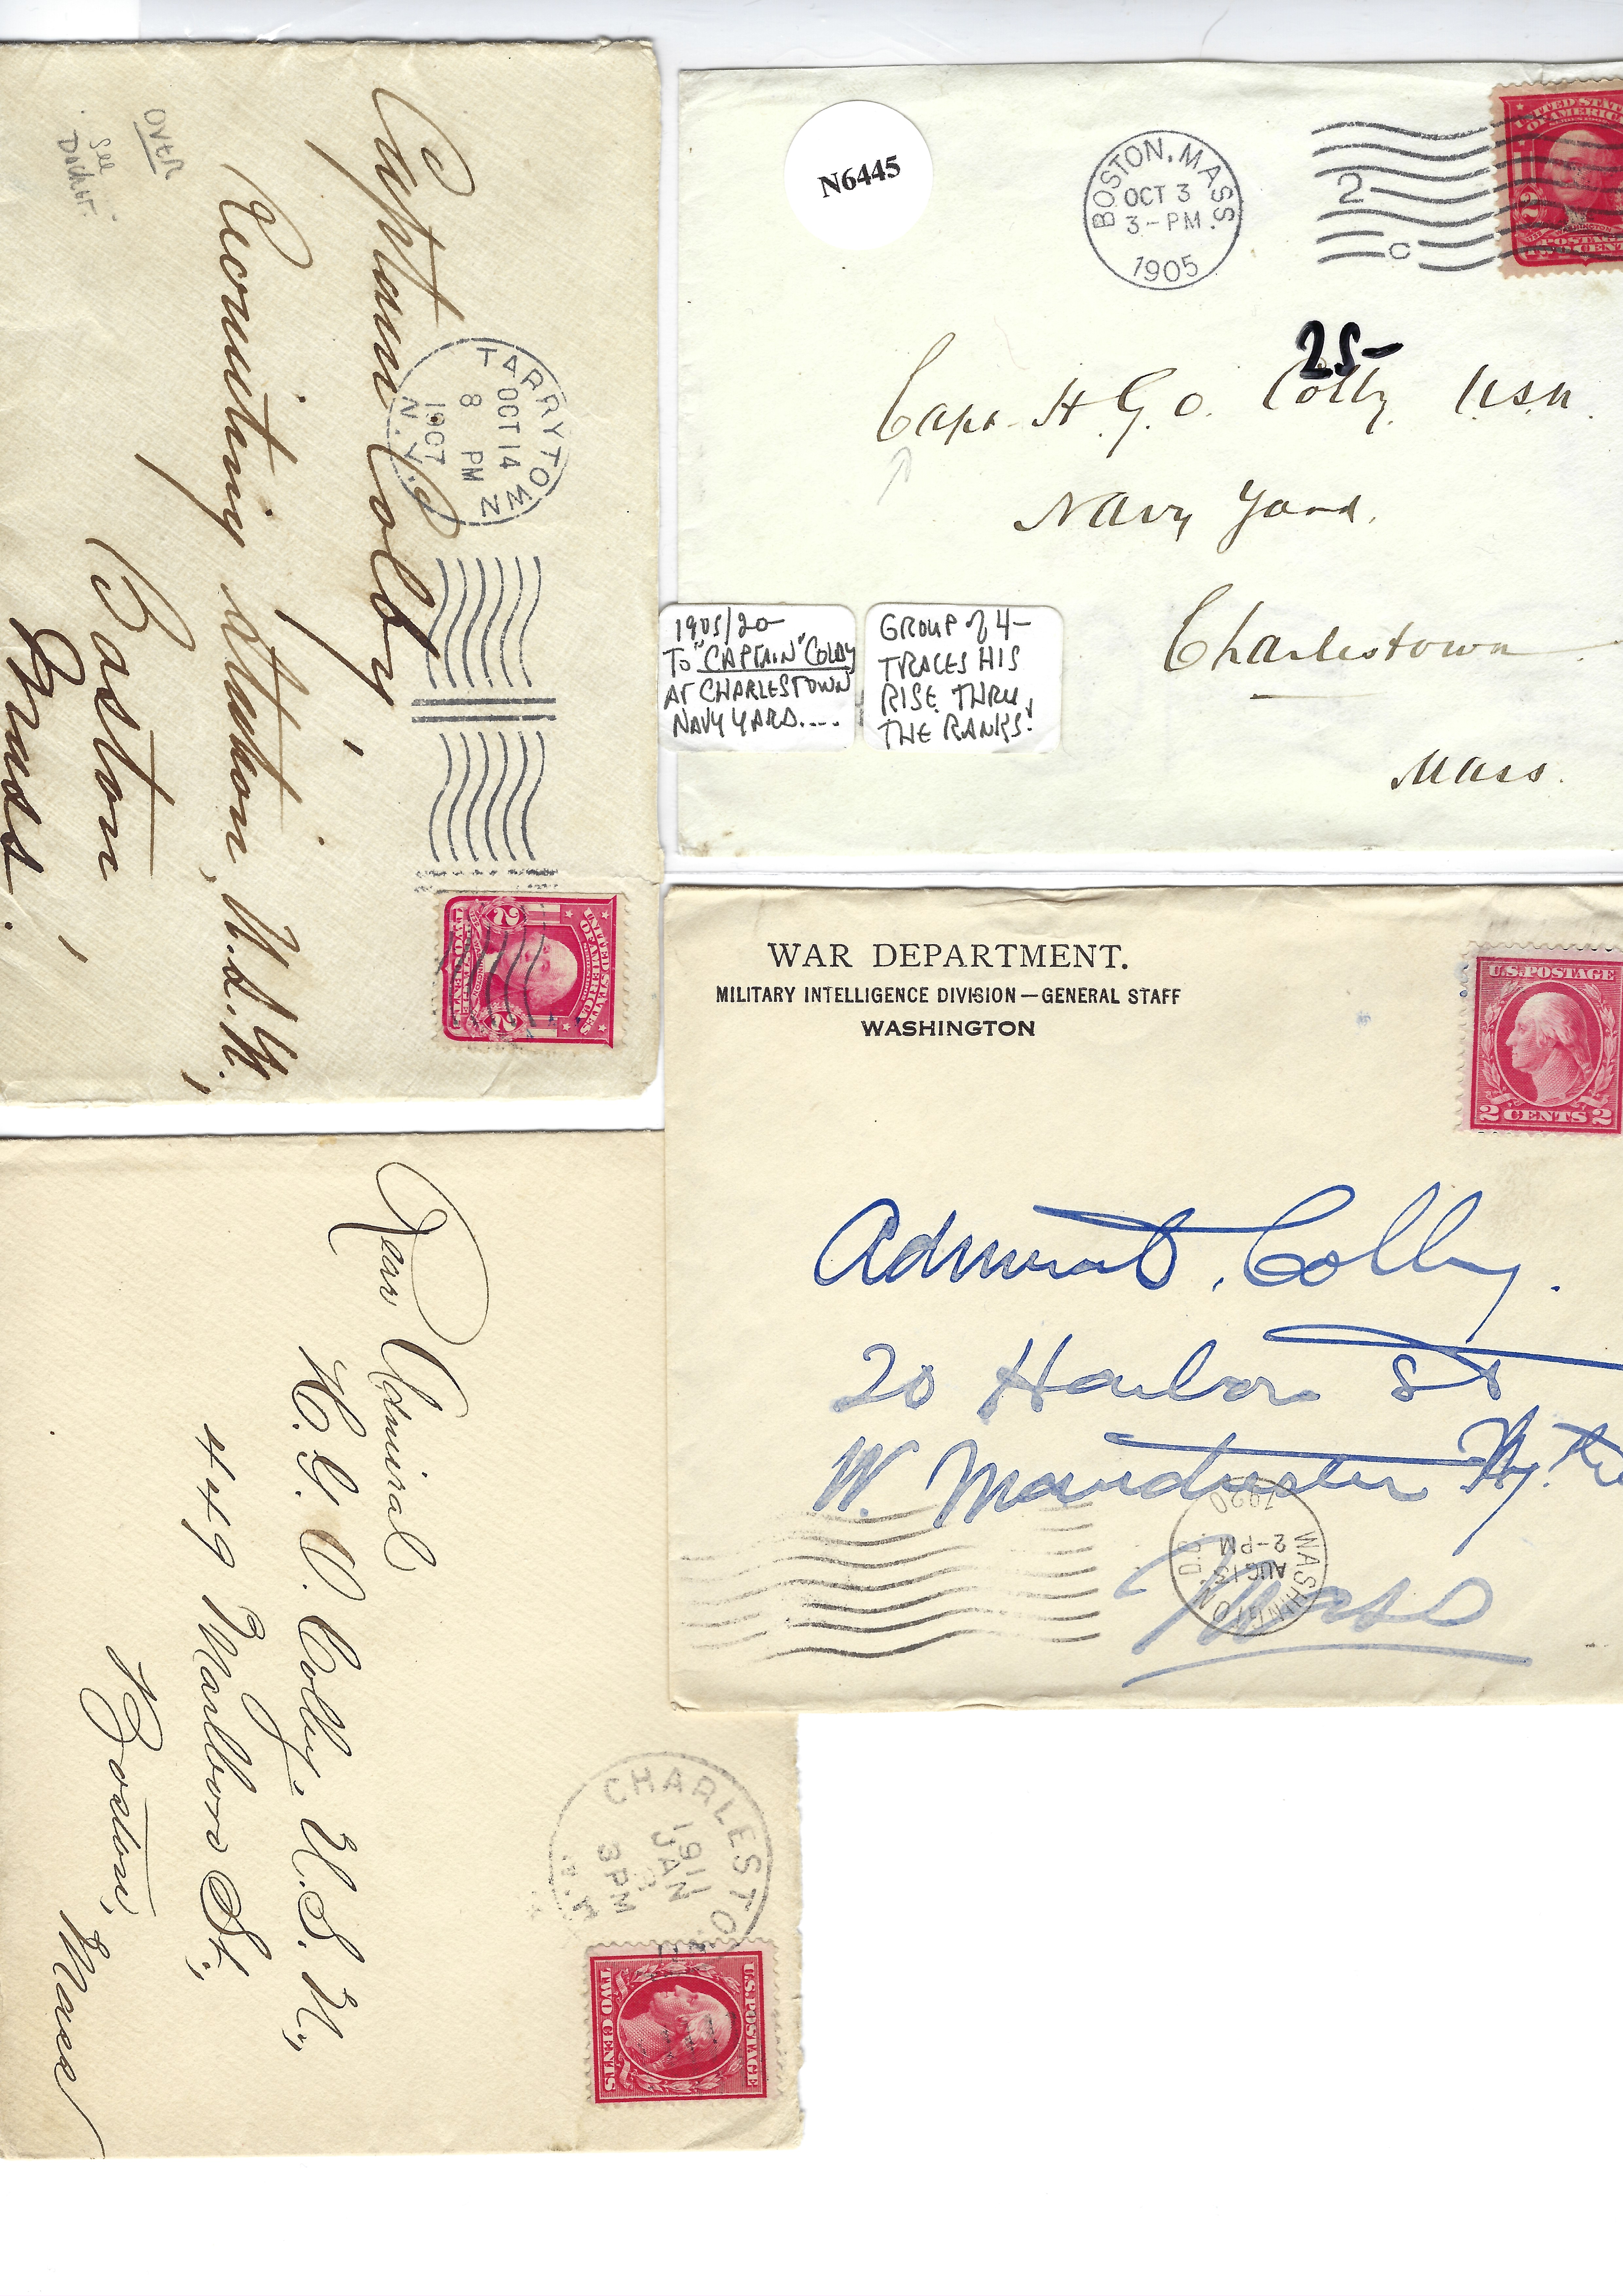 Captain Colby
Recruiting Station, U.S.N.,
Boston
Mass.
OVER
See
TARRYTOWN
OCT 14
8 PM
1907
N.Y.
UNITED STATES
OF AMERICA
2 2
TWO CENTS
N6445
BOSTON, MASS.
OCT 3
3-PM
1905
2
C
UNITED STATES
OF AMERICA
2
POSTAGE
25-
Capt. H.G.O. Colby U.S.N.
Navy Yard,
Charlestown
Mass.
1905/20
TO "CAPTAIN" COLBY
AT CHARLESTOWN
NAVY YARD....
GROUP of 4-
TRACES HIS
RISE THRU
THE RANKS!
WAR DEPARTMENT.
MILITARY INTELLIGENCE DIVISION—GENERAL STAFF
WASHINGTON
U.S. POSTAGE
2 CENTS 2
Admiral Colby.
20 Harbor St
W. Manchester
Mass
WASHINGTON D.C.
AUG 13
2-PM
1920
Rear Admiral
H. G. O. Colby, U.S.N.,
449 Marlboro St.,
Boston,
Mass
CHARLESTO
1911
JAN
3PM
U.S. POSTAGE
TWO CENTS